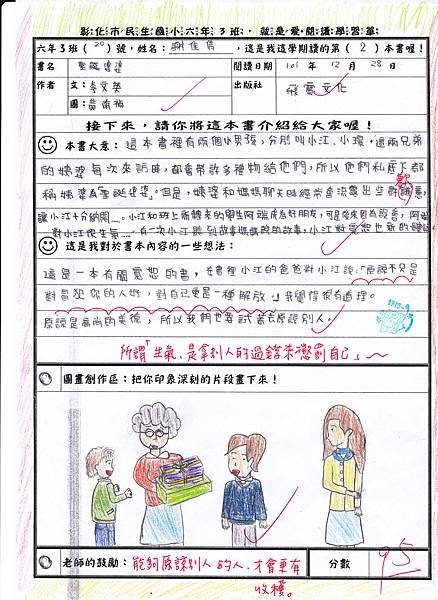 彰化市民生國小六年3班，就是愛閱讀學習單
六年3班（20）號，姓名：謝佳，這是我這學期讀的第（2）本書喔！
書名 聖誕婆婆 閱讀日期 101年12月28日
作者 文：李文英 出版社 飛寶文化
圖：黃南禎
接下來，請你將這本書介紹給大家喔！
本書大意：這本書裡有兩個小男孩，分別叫小江、小環，這兩兄弟
的姨婆每次來訪時，都會帶許多禮物給他們，所以他們私底下都
稱姨婆為「聖誕婆婆」。但是，姨婆和媽媽聊天時經常會流露出些許歉意，
讓小江十分納悶……。小江和班上新轉來的學生阿瑞成為好朋友，可是後來因為誤會，阿瑞
對小江很生氣……。有一次小江聽到
這是我對於書本內容的一些想法：
這是一本有關寬恕的書，在書裡小江的爸爸對小江說：「原諒不只是
對冒犯你的人好，對自己更是一種解放。」我覺得很有道理。
原諒是高尚的美德，所以我們也要試著去原諒別人。
所謂「生氣，是拿別人的過錯來懲罰自己」～
圖畫創作區：把你印象深刻的片段畫下來！
老師的鼓勵：能夠原諒別人的人，才會更有
收穫。
分數 95